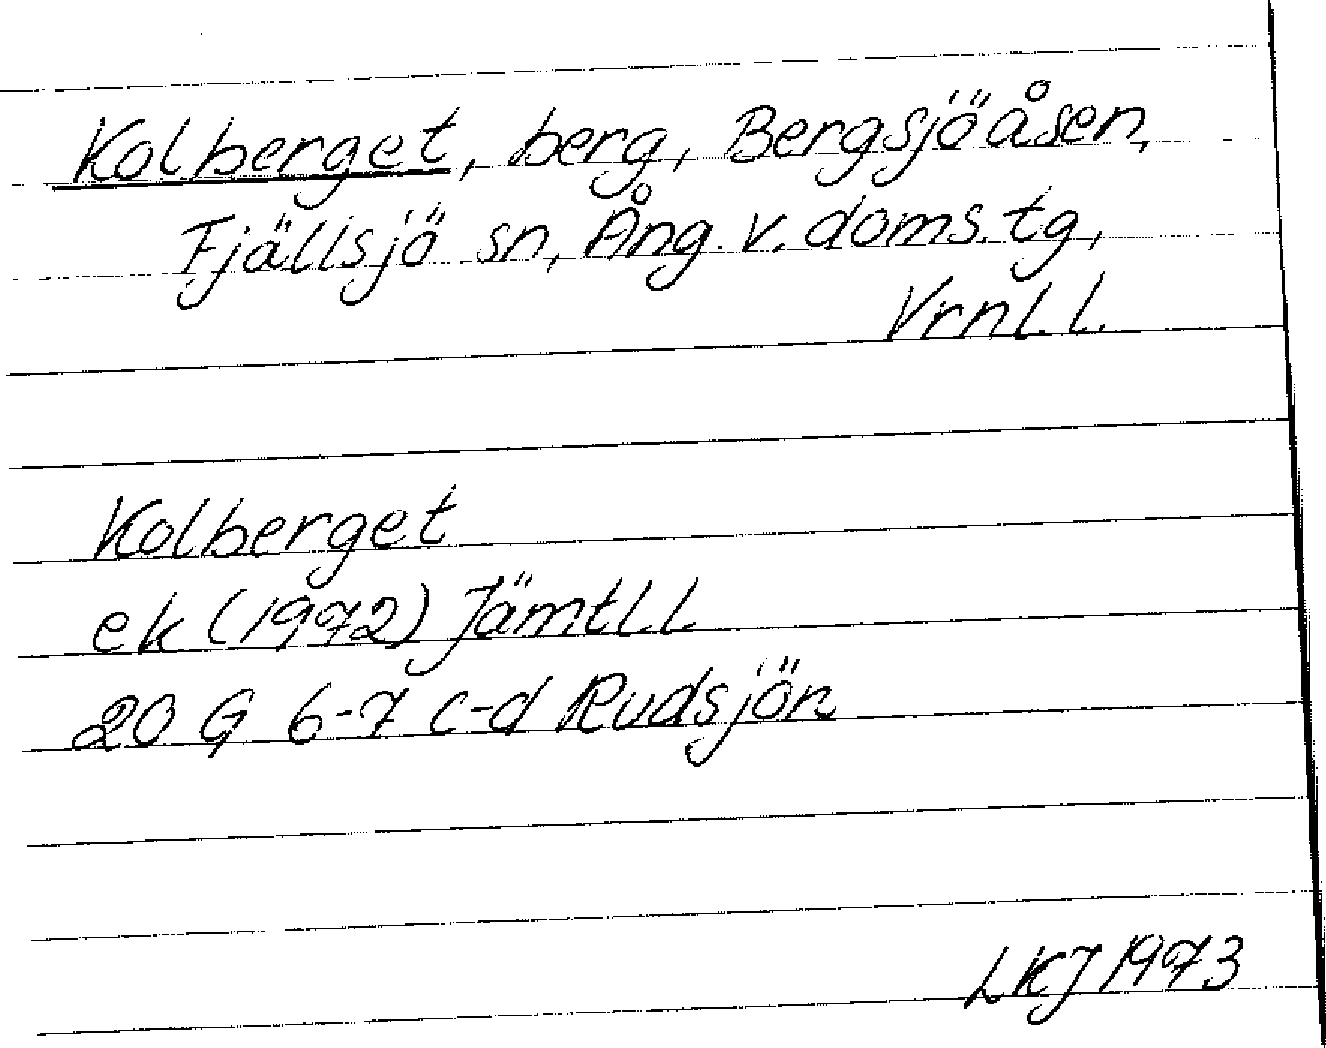 Kolberget, berg, Bergsjöåsen,
Fjällsjö sn, Ång. v. doms. tg,
Vrnl. l.
Kolberget
ek (1972) Jämtl. l.
20 G 6-7 c-d Rudsjön
LKJ 1973